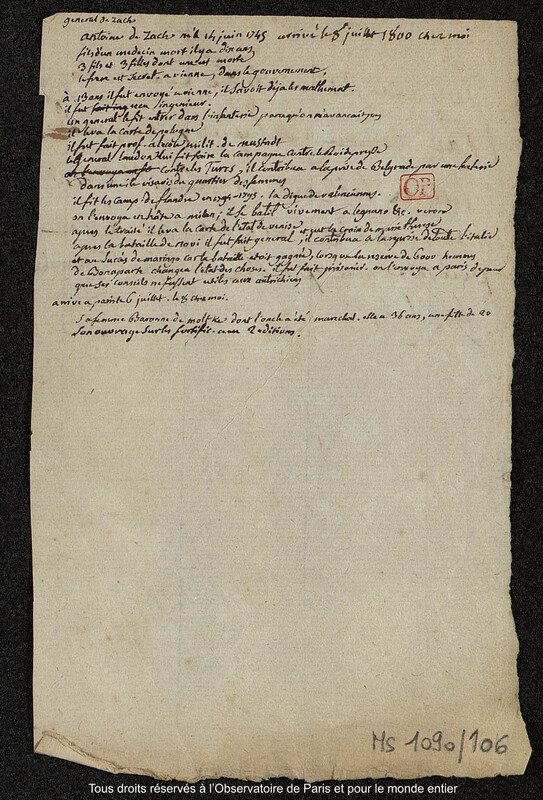 general de Zach
antoine de Zach né le 14 juin 1745 arrivé le 8 juillet 1800 chez moi
fils d'un medecin mort il y a dix ans
3 fils et 3 filles dont une est morte
le frere est Secret. a vienne, dans le gouvernement,
à 13 ans il fut envoyé a vienne, il savoit deja les mathemat.
il fut recu ingenieur.
un general le fit entrer dans l'infanterie parcequ'on n'avancait pas
il leva la carte de pologne
il fut fait prof. a l'ecole milit. de neustadt
le general laudon lui fit faire la campagne contre le Roi de prusse
contre les Turcs, il contribua a la prise de Belgrade par une batterie
dans une ile visavis du quartier des femmes
OP
il fit les camps de flandre en 1793-1795. la digue de valenciennes.
on l'envoya en italie a milan; il se batit vivement a legnano &c. verone
apres le traité il leva la Carte de l'etat de venise, et eut la croix de marie therese
apres la bataille de novi il fut fait general, il contribua a la reprise de toute l'italie
et au Succès de maringo car la bataille etoit gagnée, lorsque la reserve de 6000 hommes
de Bonaparte changea l'etat des choses. il fut fait prisonier. on l'envoya a paris de peur
que ses conseils ne fussent utiles aux autrichiens
arrivé a paris le 6 juillet. le 8 chez moi.
Sa femme Baronne de moltke dont l'oncle a été marechal. elle a 36 ans, une fille de 20
Son ouvrage sur les fortific. a eu 2 editions.
MS 1090/106
Tous droits réservés à l'Observatoire de Paris et pour le monde entier